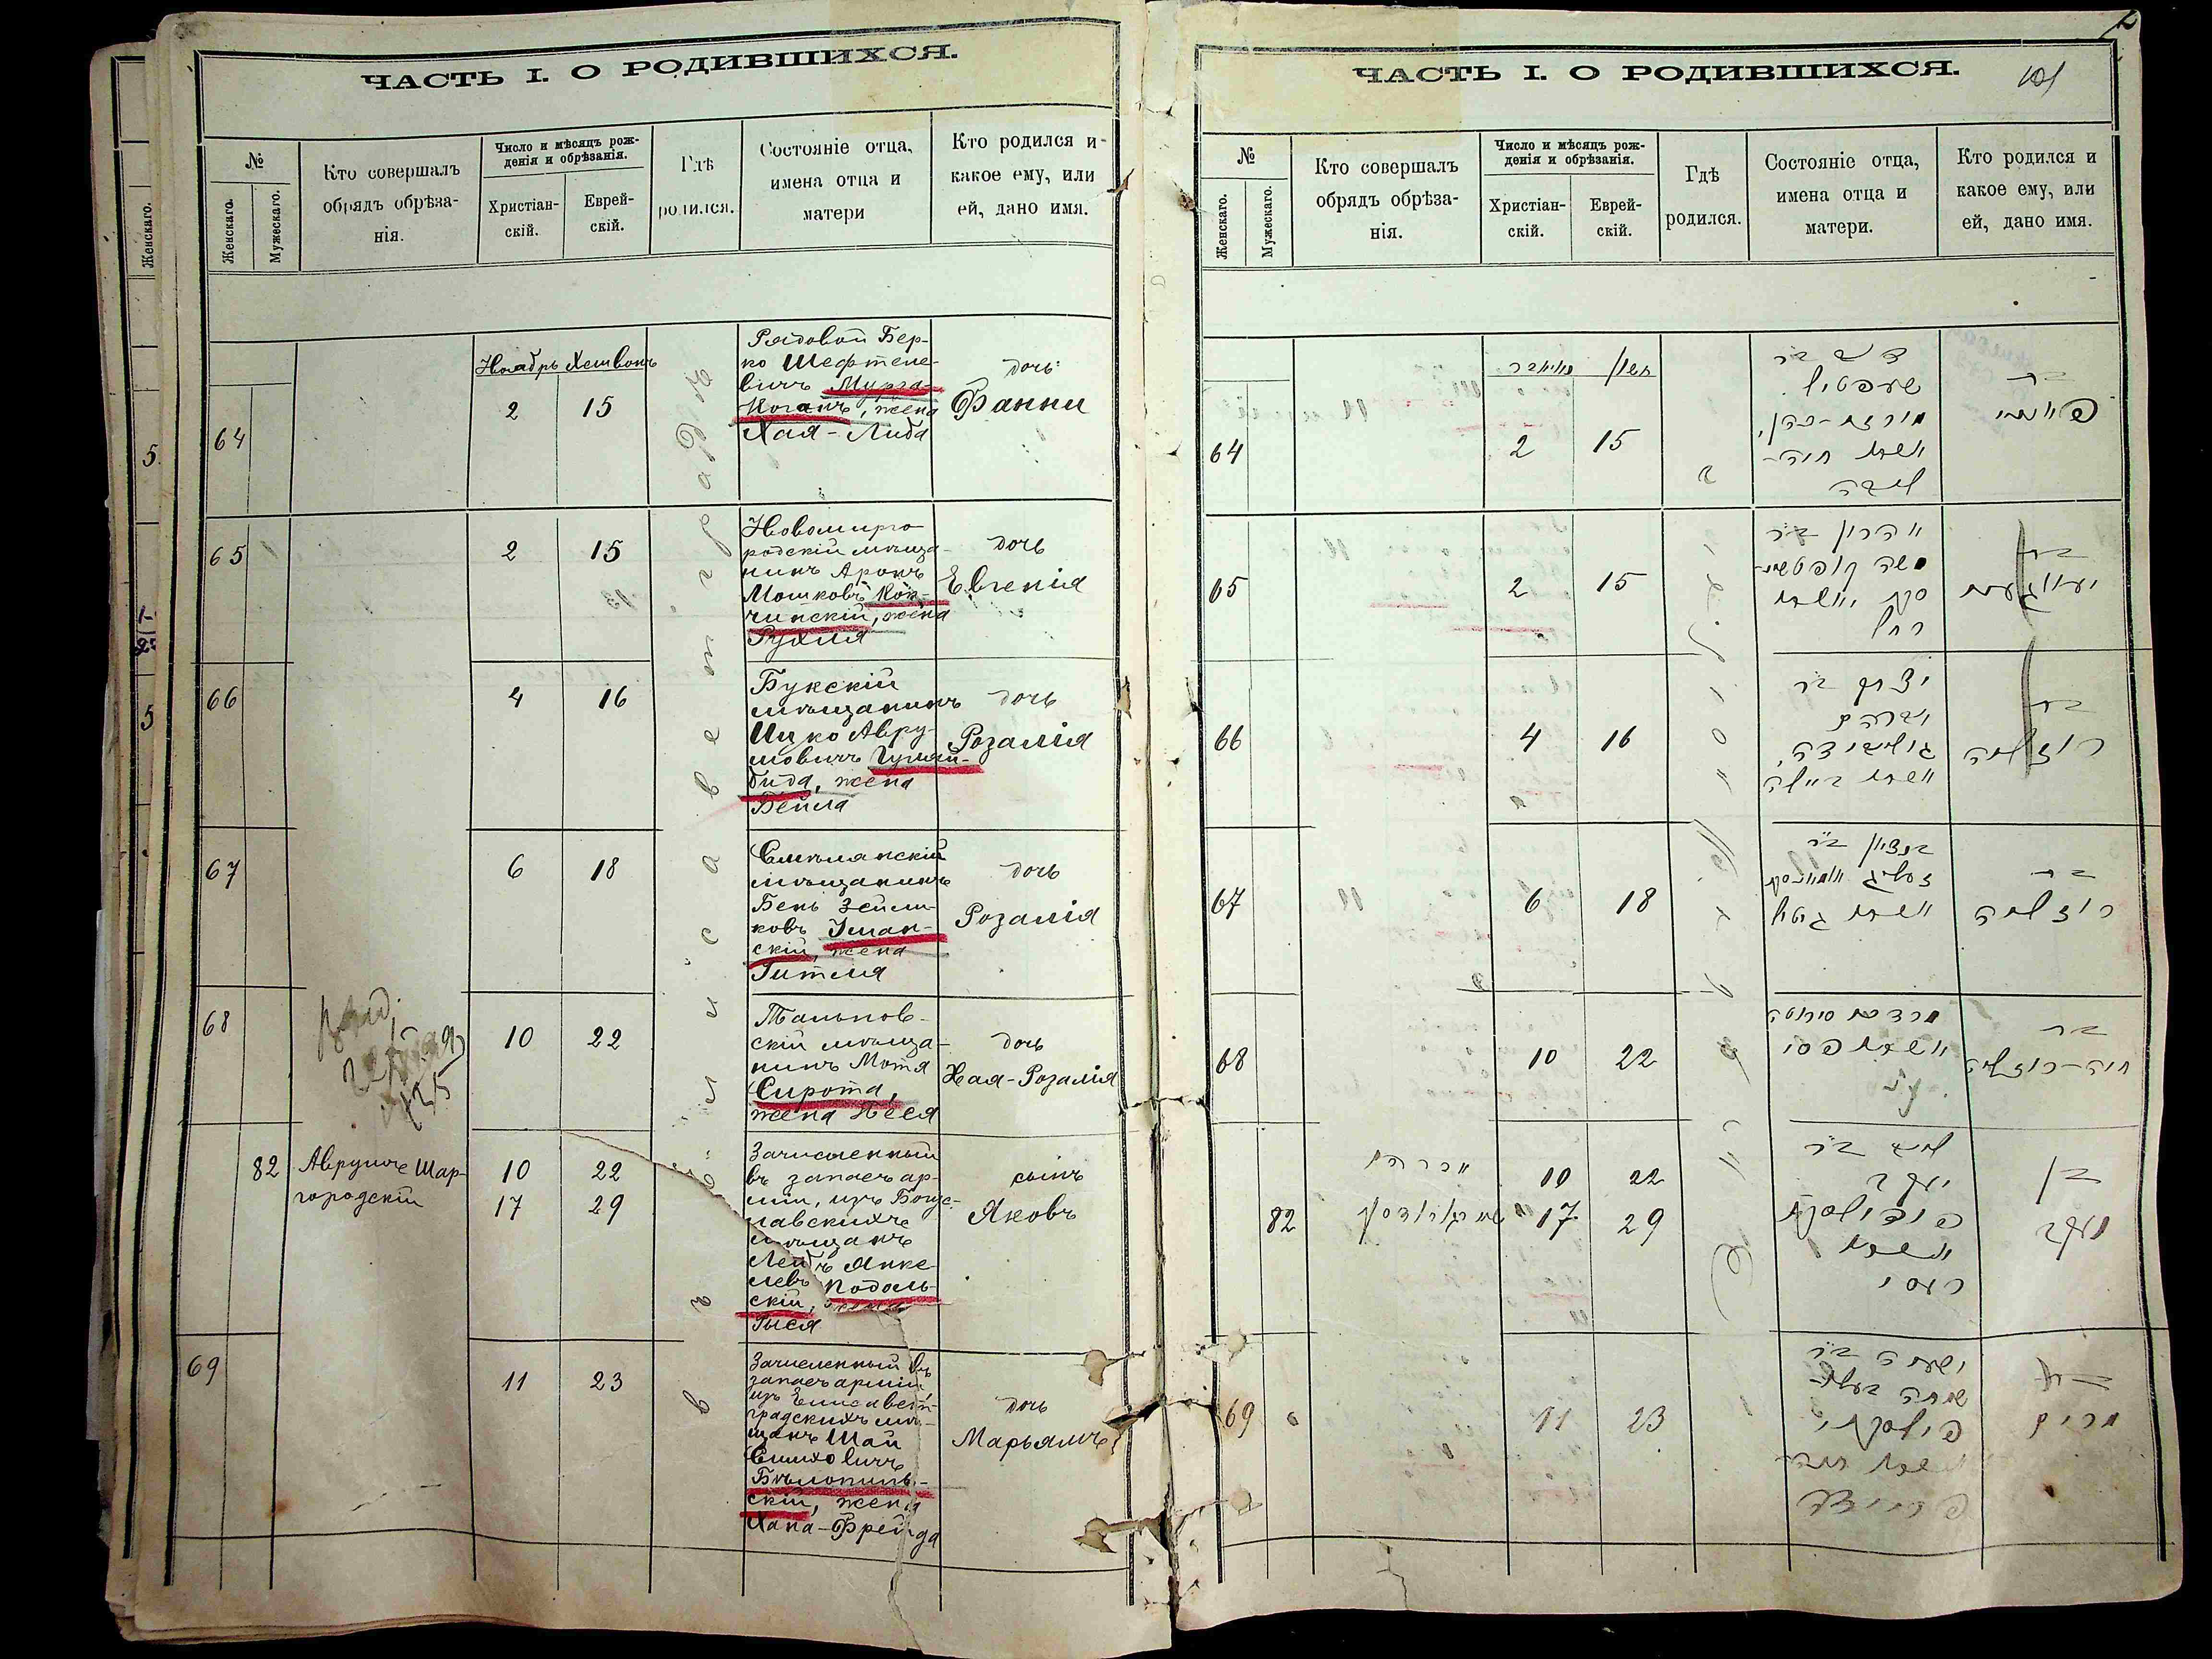 ЧАСТЬ I. О РОДИВШИХСЯ.
№
Женскаго.
Мужескаго.
Кто совершалъ
обрядъ обрѣза-
нія.
Число и мѣсяцъ рож-
денія и обрѣзанія.
Христіан-
скій.
Еврей-
скій.
Гдѣ
родился.
Состояніе отца,
имена отца и
матери
Кто родился и
какое ему, или
ей, дано имя.
Ноябрь Хешвонъ
64
2 15
Рядовой Бер-
ко Шефтеле-
вичъ Мурга-
Коганъ, жена
Хая-Либа
дочь
Фанни
65
2 15
Новомирго
родскій мѣща-
нинъ Аронъ
Мошковъ Коп-
чинскій, жена
Рухля
дочь
Евгенія
66
4 16
Букскій
мѣщанинъ
Ицко Авру-
мовичъ Гуляй-
бида, жена
Бейла
дочь
Розалія
67
6 18
Смѣлянскій
мѣщанинъ
Бень Зейли-
ковъ Уман-
скій, жена
Гитля
дочь
Розалія
68
10 22
Тальнов-
скій мѣща-
нинъ Мотя
Сирота,
жена Песя
дочь
Хая-Розалія
82
Аврумъ Шар-
городскій
10 22
17 29
Зачисленный
въ запасъ ар-
міи, изъ Богус-
лавскихъ
мѣщанъ
Лейбъ Янке-
левъ Подоль-
скій, жена
Рыся
сынъ
Яковъ
69
11 23
Зачисленный въ
запасъ арміи,
изъ Елисавет-
градскихъ мѣ-
щанъ Шай
Симховичъ
Бѣлопиль-
скій, жена
Хана-Фрейда
дочь
Марьямъ
въ Елисаветградѣ
ЧАСТЬ I. О РОДИВШИХСЯ.
101
№
Женскаго.
Мужескаго.
Кто совершалъ
обрядъ обрѣза-
нія.
Число и мѣсяцъ рож-
денія и обрѣзанія.
Христіан-
скій.
Еврей-
скій.
Гдѣ
родился.
Состояніе отца,
имена отца и
матери.
Кто родился и
какое ему, или
ей, дано имя.
64
2 15
דב בר
שעפטיל
ואשתו חיה-
ליבה
בת
65
2 15
אהרון בר
משה
רחל
בת
66
4 16
יצחק בר
אברהם
ואשתו ביילה
בת
רוזליה
67
6 18
בנציון בר
זעליג
ואשתו גיטל
בת
רוזליה
68
10 22
ואשתו פסי
בת
חיה-רוזליה
82
אברהם
10 22
17 29
ליב בר
יעקב
ואשתו
בן
יעקב
69
11 23
ישעיה בר
בת
מרים